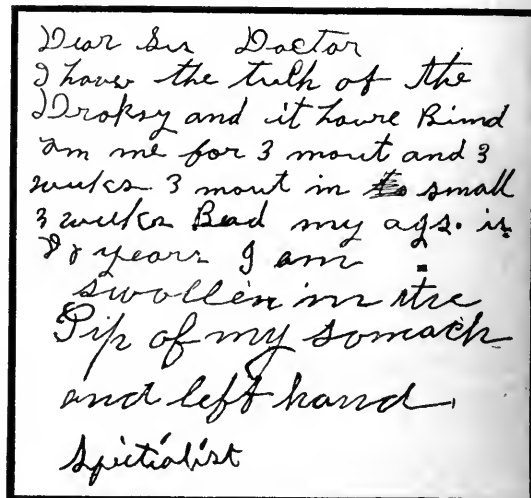 Dear Sir Doctor
I have the truth of the
Dropsy and it have Bind
am me for 3 mout and 3
weeks 3 mout in small
3 weeks Bad my ags. is
years I am
swollen in the
Pip of my somach
and left hand
Spitialist